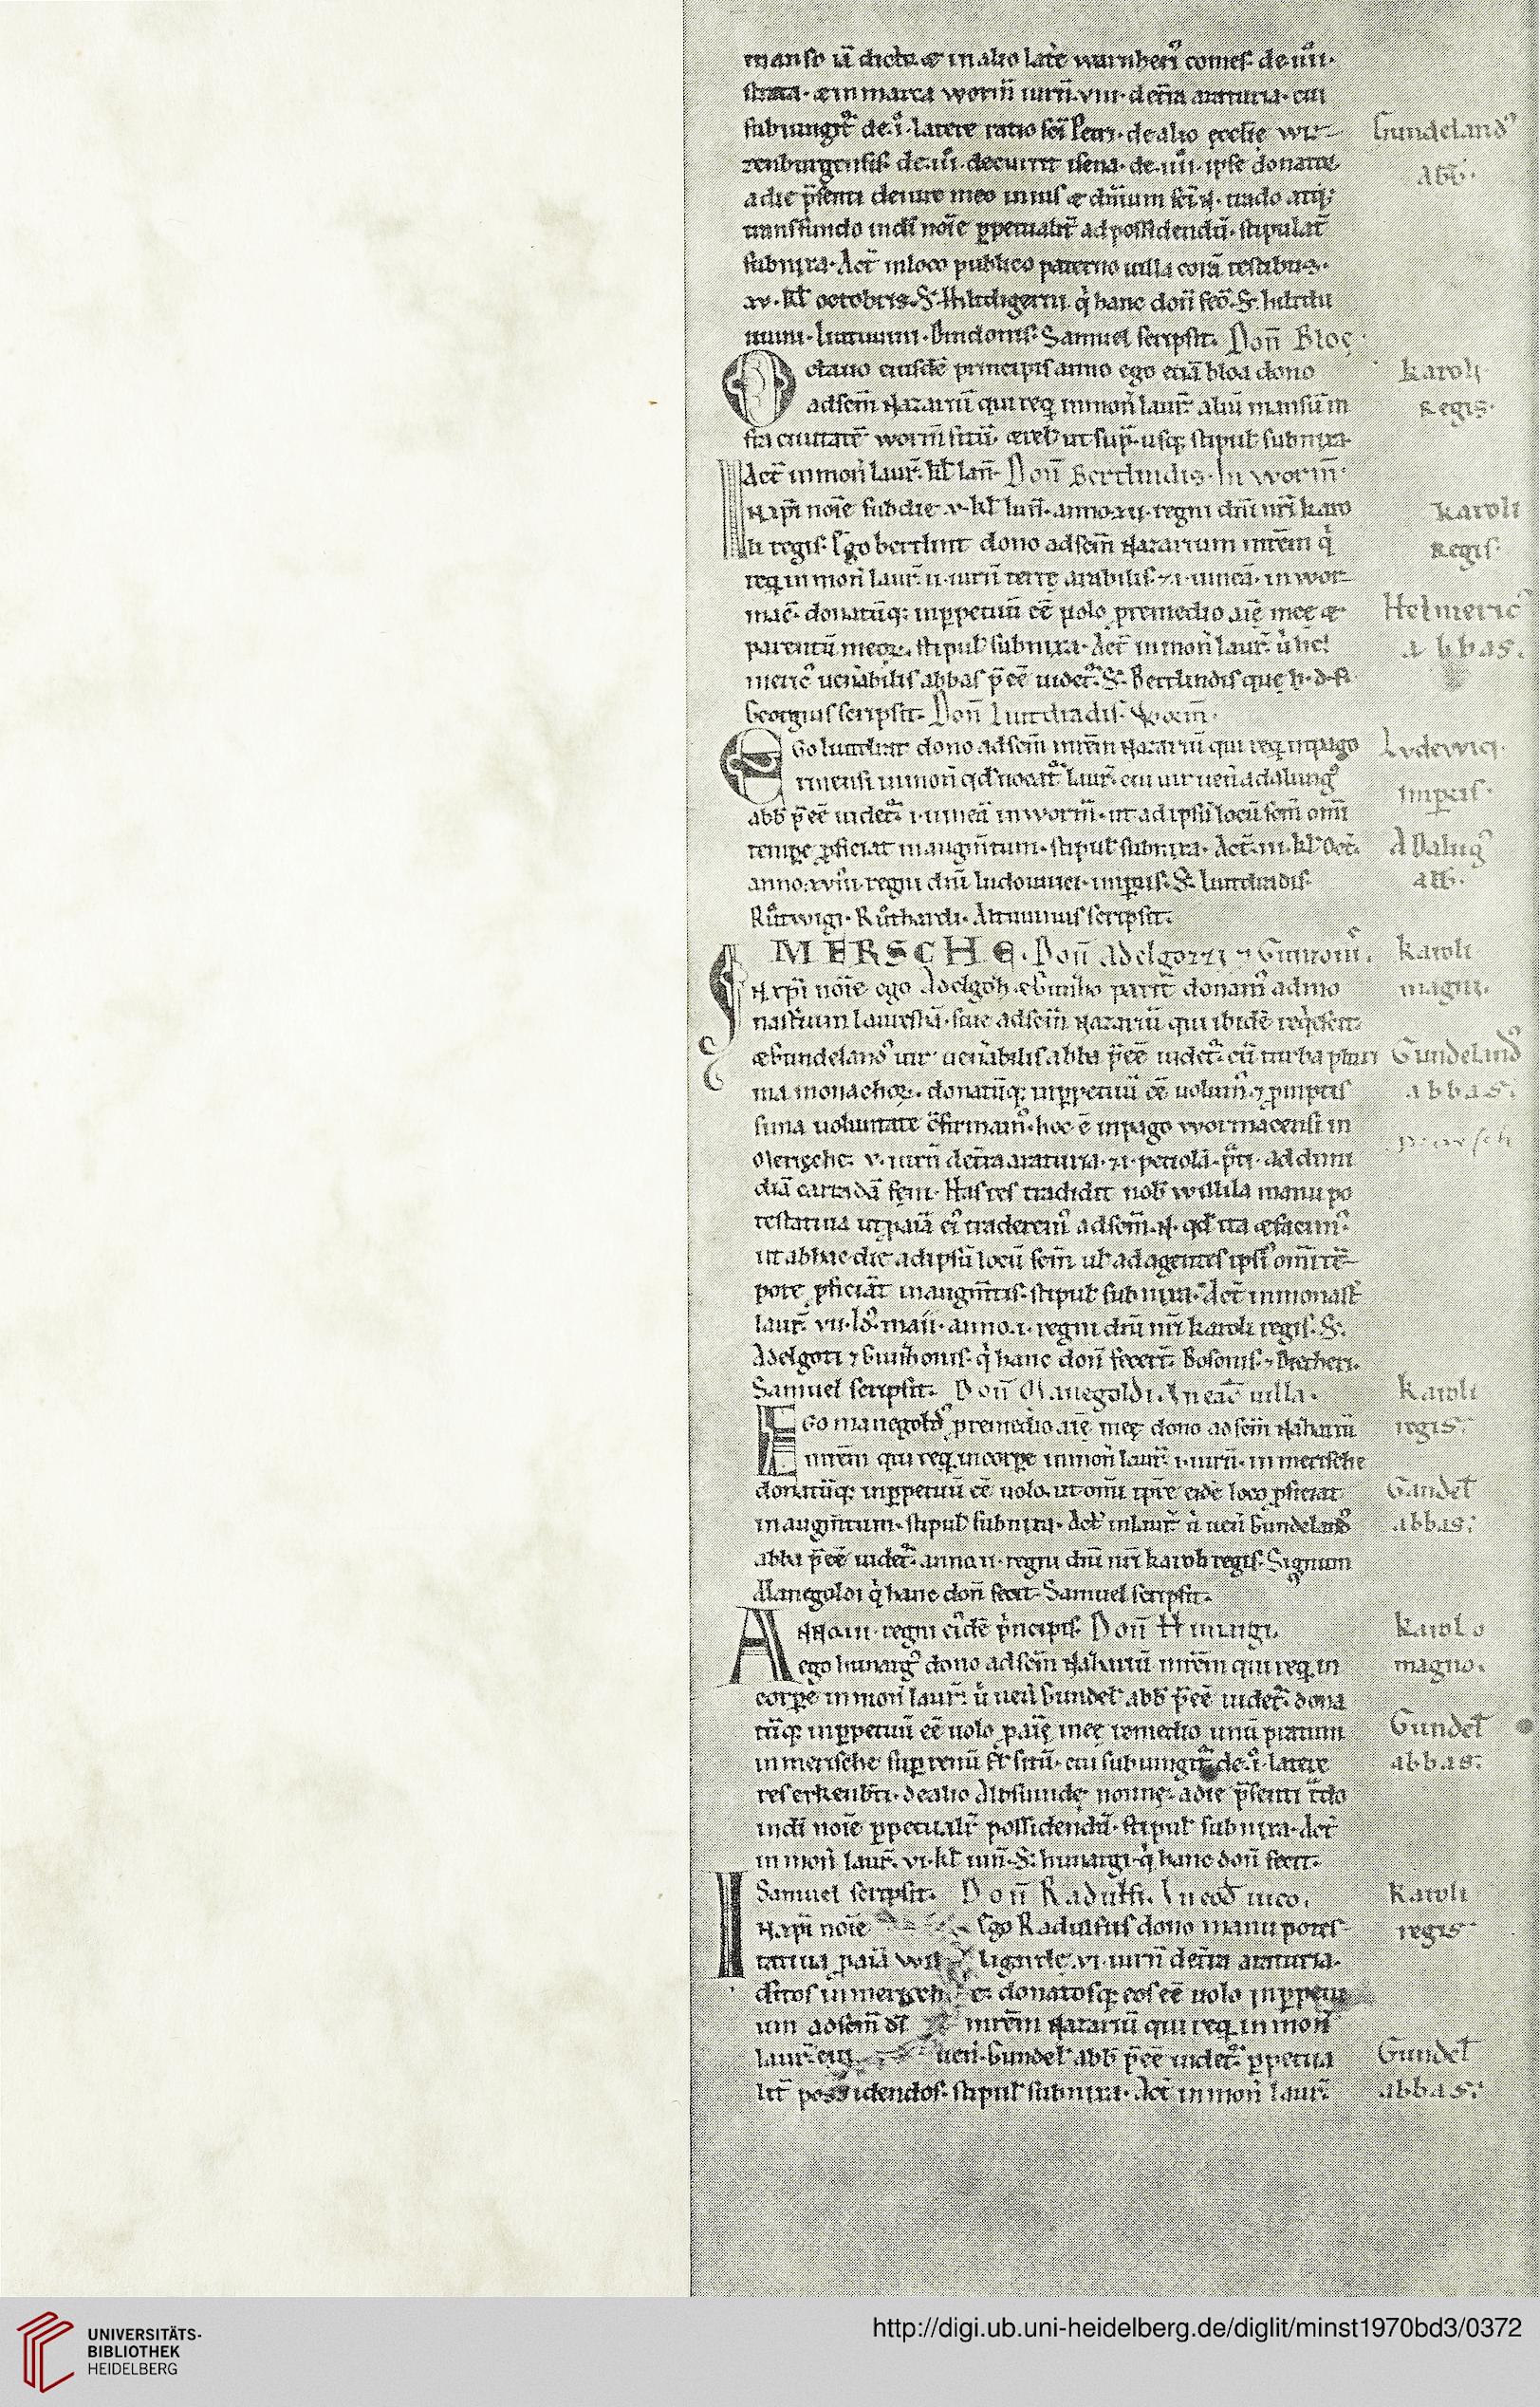 manso iā dicto. & in alio late wurnheri᷒ comes. de .iiii.
strata. & in marca worm̄ iurn̄ .viii. de tr̄a araturia. cui
subiungit᷑ de .i. latere ratio sc̄i Petri. de alio ęcclīe wir
zenburgensis. de .iii. decurrit isena. de .iiii. ipse donatr̄
a die p̄senti de iure meo in ius & dn̄ium sc̄i .N. trado atq;
transfundo in dī noīe ꝑpetualit᷑ ad possidendū. stipulat̄
subnixa. Act̄ in loco publico paterno uilla corā testibus.
xv. kl̄ octobris. S. Hiltdigerni q̇ hanc don̄ fec̄. S. hiltdu
wini. liutuuini. Bindonis. Samuel scripsit. Don̄ Bloę
Octauo eiusdē principis anno ego etiā bloa dono
ad sc̄m Nazariū qui req in mon̄ laur̄ aliū mansū in
fra ciuitatē worm̄ sitū. & rel̄ ut sup̄. usq; stipul̄ subnixa.
Act̄ in mon̄ laur̄. kl̄ Ian̄. Don̄ Bertlindis. In worm̄.
In xp̄i noīe sub die .v. kl̄ Iun̄. anno .xii. regni dn̄i nr̄i karo
li regis. Ego bertlint dono ad sc̄m Nazarium mr̄em q̇
req in mon̄ laur̄ .ii. iurn̄ terrę arabilis. ⁊ .i. uineā. in wor
mac̄. donatūq; inꝑpetuū eē uolo ꝓ remedio aīę meę &
parentū meoꝝ. stipul̄ subnixa. Act̄ in mon̄ laur̄. u̇ hel
meric᷒ uenabilis abbas p̄eē uidet᷑. S. Bertlindis que h. d. f.
Georgius scripsit. Don̄ Liutdradis.
Ego liutdrat dono ad sc̄m mr̄em Nazariū qui req in pago
rinensi in mon̄ qd̄ uocat᷑ laur̄. cui uir uen̄ adalung᷒
abb̄ p̄eē uidet᷑ .i. uineā in worm̄. ut ad ipsū locū sc̄m om̄i
tempe ꝓficiat in augm̄tum. stipul̄ subnixa. Act̄ .iii. kl̄ Oct̄.
anno .xviii. regni dn̄i ludouuici imp̄ris. S. liutdradis.
Ru᷒twigi. Ru᷒thardi. Altuuinus scripsit.
MERSCHE. Don̄ Adelgozi ⁊
In xp̄i noīe ego Adelgoz. & Guntbo parit̄ donam᷒ ad mo
nasterium laureshā. siue ad sc̄m Nazariū qui ibidē reqescit.
& Gundeland᷒ uir uenabilis abba p̄eē uidet᷑. cū turba pluri
ma monachoꝝ. donatūq; inꝑpetuū eē uolum᷒. ⁊ promptis
sima uoluntate c̄firmam᷒. hoc ē in pago wormacensi in
Merische. v. iurn̄ de tr̄a araturia. ⁊ .i. petiolā. p̄ti. ad duni
diā carradā feni. Has res tradidit nob̄ willila manu po
testatiua ut ꝓ aīa ei᷒ traderem᷒ ad sc̄m .N. qd̄ ita & facim᷒.
ut ab hac die ad ipsū locū sc̄m ul̄ ad agentes ipsi᷒ om̄i tē
pore ꝓficiāt in augm̄tis. stipul̄ subnixa. Act̄ in monast̄
laur̄. vii. Id᷒. maii. anno .i. regni dn̄i nr̄i karoli regis. S.
Adelgoti ⁊ Gunthonis. q̇ hanc don̄ fecert̄. Bosonis. ⁊ Bietheri.
Samuel scripsit. Don̄ Manegoldi. In eād̄ uilla.
Ego manegold᷒ ꝓ remedio aīę meę dono ad sc̄m Nazariū
mr̄em qui req in corpe in mon̄ laur̄ .i. iurn̄. in merische
donatūq; inꝑpetuū eē uolo. ut om̄i tp̄re eidē loco ꝓficiat
in augm̄tum. stipul̄ subnixa. Act̄ in laur̄. u̇ uen̄ Gundeland᷒
abba p̄eē uidet᷑. anno .ii. regni dn̄i nr̄i karoli regis. Signum
Manegoldi q̇ hanc don̄ fecit. Samuel scripsit.
Anno .iii. regni ei᷒dē p̄ncipis. Don̄ Hunungi.
ego hunung᷒ dono ad sc̄m Nazariū mr̄em qui req in
corpe in mon̄ laur̄. u̇ uen̄ Gundel̄ abb̄ p̄eē uidet᷑. dona
tūq; inꝑpetuū eē uolo ꝓ aīę meę remedio unū pratum
in merische sup renū fl̄ sitū. cui subiungit᷑ de .i. latere
res erkenb̄ti. de alio Albsuindę nonnę. a die p̄senti tdo
in dī noīe ꝑpetualit᷑ possidendū. stipul̄ subnixa. Act̄
in mon̄ laur̄. vi. kl̄ iun̄. S. hunungi. q̇ hanc don̄ fecit.
Samuel scripsit. Don̄ Radulfi. In eod̄ uico.
In xp̄i noīe Ego Radulfus dono manu potes
tatiua ꝓ aīa ligarde. vi. iurn̄ de tr̄a araturia.
sitos in mersch e. donatosq; eos eē uolo inꝑpetu
um ad sc̄m dī mr̄em Nazariū qui req in mon̄
laur̄. cui uen̄. Gundel̄ abb̄ p̄eē uidet᷑. ꝑpetua
lit̄ possidendos. stipul̄ subnixa. Act̄ in mon̄ laur̄
Gundeland᷒
abb̄.
Karoli
Regis.
Karoli
Regis.
Helmeric᷒
abbas.
Lvdewici
Imperis.
ADalūg᷒
abb̄.
Karoli
magni.
Gundeland᷒
abbas.
Karoli
regis.
Gundel̄
abbas.
Karolo
magno.
Gundel̄
abbas.
Karoli
regis
Gundel̄
abbas.
UNIVERSITÄTS-
BIBLIOTHEK
HEIDELBERG
http://digi.ub.uni-heidelberg.de/diglit/minst1970bd3/0372